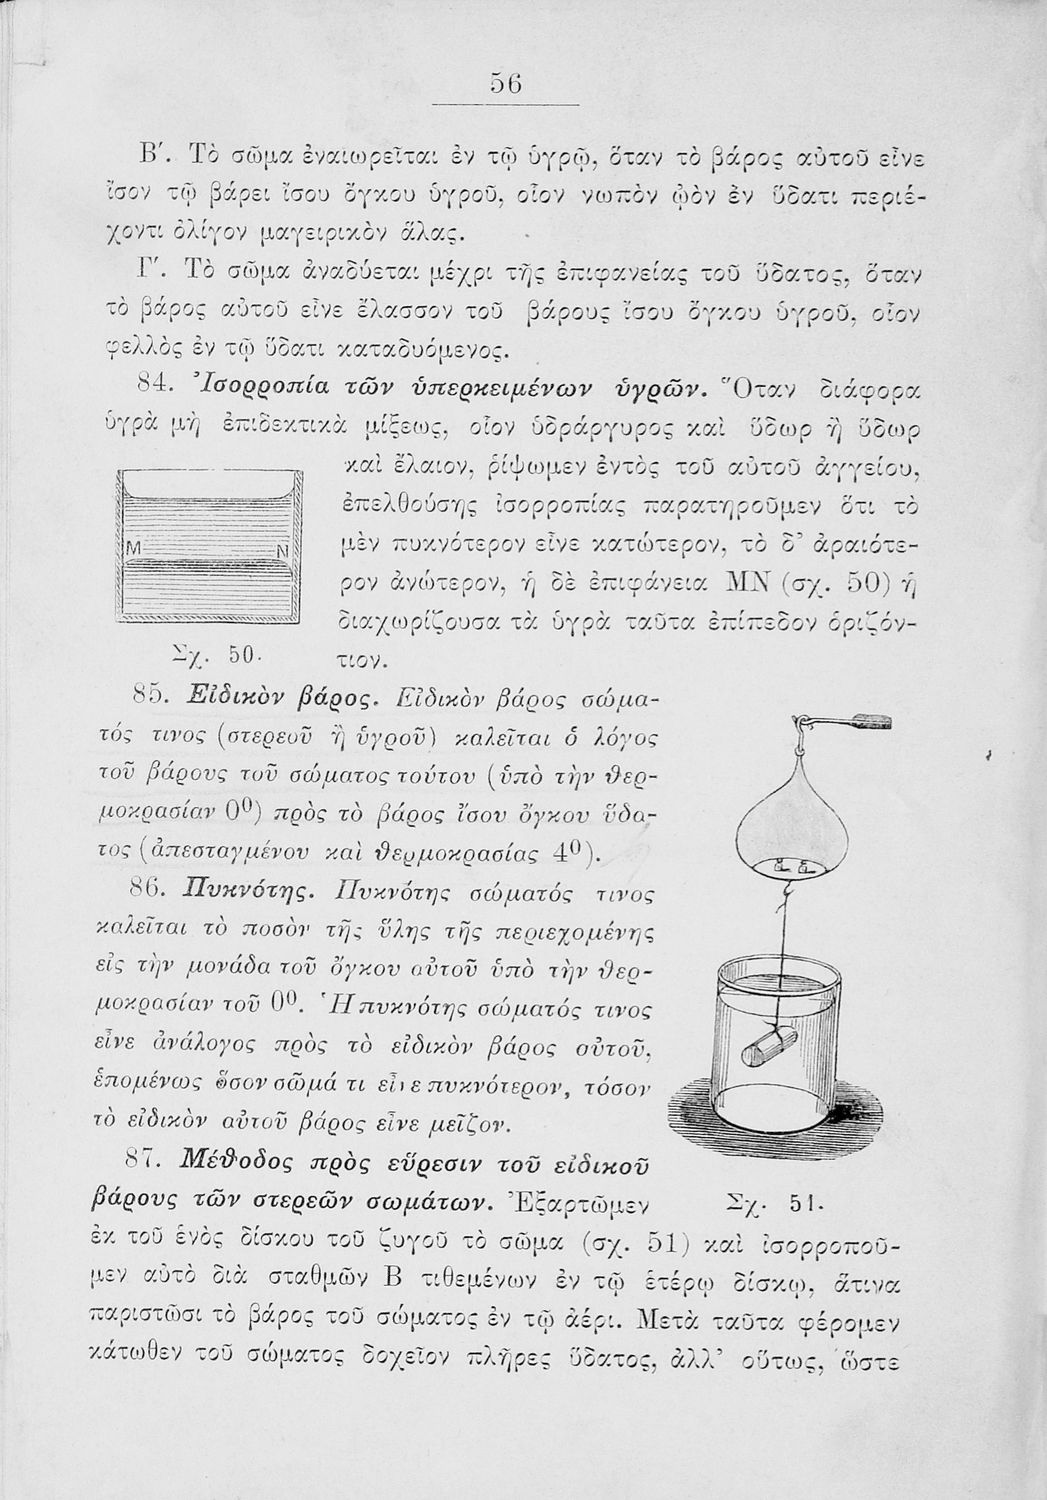 56
Β′. Τὸ σῶμα ἐναιωρεῖται ἐν τῷ ὑγρῷ, ὅταν τὸ βάρος αὐτοῦ εἶνε
ἴσον τῷ βάρει ἴσου ὄγκου ὑγροῦ, οἷον νωπὸν ᾠὸν ἐν ὕδατι περιέ-
χοντι ὀλίγον μαγειρικὸν ἅλας.
Γ′. Τὸ σῶμα ἀναδύεται μέχρι τῆς ἐπιφανείας τοῦ ὕδατος, ὅταν
τὸ βάρος αὐτοῦ εἶνε ἔλασσον τοῦ βάρους ἴσου ὄγκου ὑγροῦ, οἷον
φελλὸς ἐν τῷ ὕδατι καταδυόμενος.
84. Ἰσορροπία τῶν ὑπερκειμένων ὑγρῶν. Ὅταν διάφορα
ὑγρὰ μὴ ἐπιδεκτικὰ μίξεως, οἷον ὑδράργυρος καὶ ὕδωρ ἢ ὕδωρ
καὶ ἔλαιον, ῥίψωμεν ἐντὸς τοῦ αὐτοῦ ἀγγείου,
ἐπελθούσης ἰσορροπίας παρατηροῦμεν ὅτι τὸ
μὲν πυκνότερον εἶνε κατώτερον, τὸ δ' ἀραιότε-
ρον ἀνώτερον, ἡ δὲ ἐπιφάνεια ΜΝ (σχ. 50) ἡ
διαχωρίζουσα τὰ ὑγρὰ ταῦτα ἐπίπεδον ὁριζόν-
τιον.
M N
Σχ. 50.
85. Εἰδικὸν βάρος. Εἰδικὸν βάρος σώμα-
τός τινος (στερεοῦ ἢ ὑγροῦ) καλεῖται ὁ λόγος
τοῦ βάρους τοῦ σώματος τούτου (ὑπὸ τὴν θερ-
μοκρασίαν 0⁰) πρὸς τὸ βάρος ἴσου ὄγκου ὕδα-
τος (ἀπεσταγμένου καὶ θερμοκρασίας 4⁰).
86. Πυκνότης. Πυκνότης σώματός τινος
καλεῖται τὸ ποσὸν τῆς ὕλης τῆς περιεχομένης
εἰς τὴν μονάδα τοῦ ὄγκου αὐτοῦ ὑπὸ τὴν θερ-
μοκρασίαν τοῦ 0⁰. Ἡ πυκνότης σώματός τινος
εἶνε ἀνάλογος πρὸς τὸ εἰδικὸν βάρος αὐτοῦ,
ἑπομένως ὅσον σῶμά τι εἶνε πυκνότερον, τόσον
τὸ εἰδικὸν αὐτοῦ βάρος εἶνε μεῖζον.
87. Μέθοδος πρὸς εὕρεσιν τοῦ εἰδικοῦ
βάρους τῶν στερεῶν σωμάτων. Ἐξαρτῶμεν
Σχ. 51.
ἐκ τοῦ ἑνὸς δίσκου τοῦ ζυγοῦ τὸ σῶμα (σχ. 51) καὶ ἰσορροποῦ-
μεν αὐτὸ διὰ σταθμῶν Β τιθεμένων ἐν τῷ ἑτέρῳ δίσκῳ, ἅτινα
παριστῶσι τὸ βάρος τοῦ σώματος ἐν τῷ ἀέρι. Μετὰ ταῦτα φέρομεν
κάτωθεν τοῦ σώματος δοχεῖον πλῆρες ὕδατος, ἀλλ' οὕτως, ὥστε